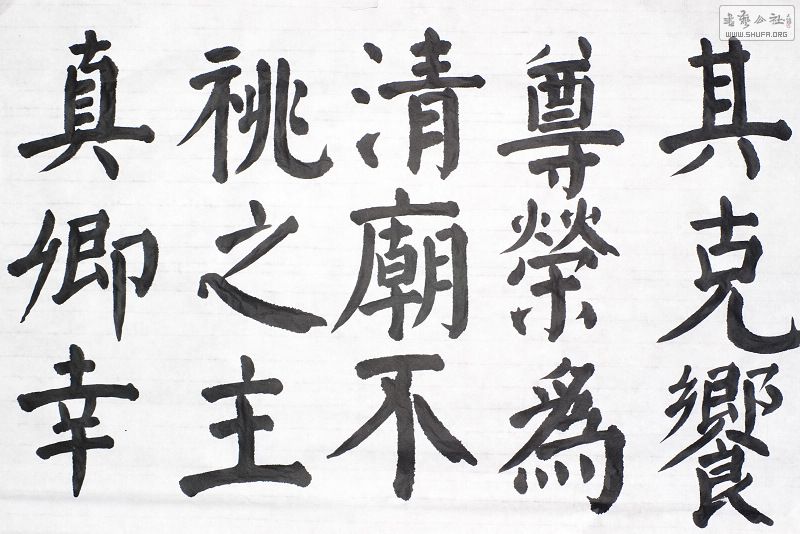 其克饗
尊榮為
清廟不
祧之主
真卿幸
書藝公社
WWW.SHUFA.ORG